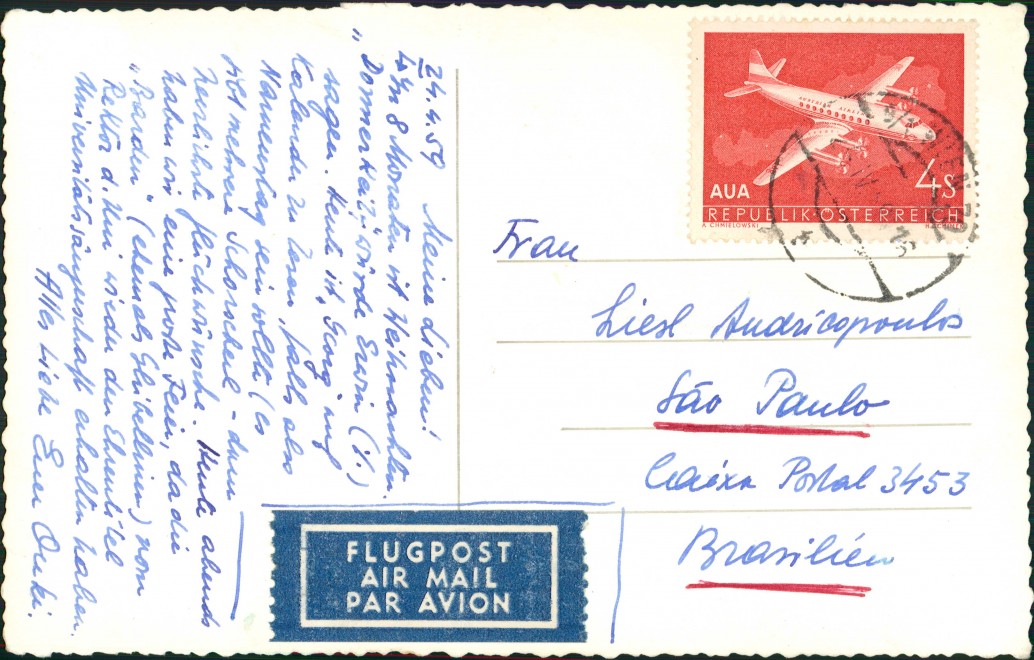 24.4.59 Meine Lieben!
In 8 Monaten ist Weihnachten.
„Donnerkeil", würde Erwin (!)
sagen. Heute ist „Georg" auf
Kalender zu lesen, falls also
Namenstag sein sollte (es
gibt mehrere Schorscherl - dann
herzlichste Glückwünsche. Heute abends
haben wir eine große Feier, da die
„Barden" (ehemals Ghibellinen) vom
Rektor d. Uni wieder den Ehrentitel
Universitätssängerschaft erhalten haben.
Alles Liebe Euer Onki.
AUSTRIAN AIRLINES
AUA
4S
REPUBLIK·ÖSTERREICH
A. CHMIELOWSKI
Frau
Liesl Andricopoulos
São Paulo
Caixa Postal 3453
Brasilien
FLUGPOST
AIR MAIL
PAR AVION